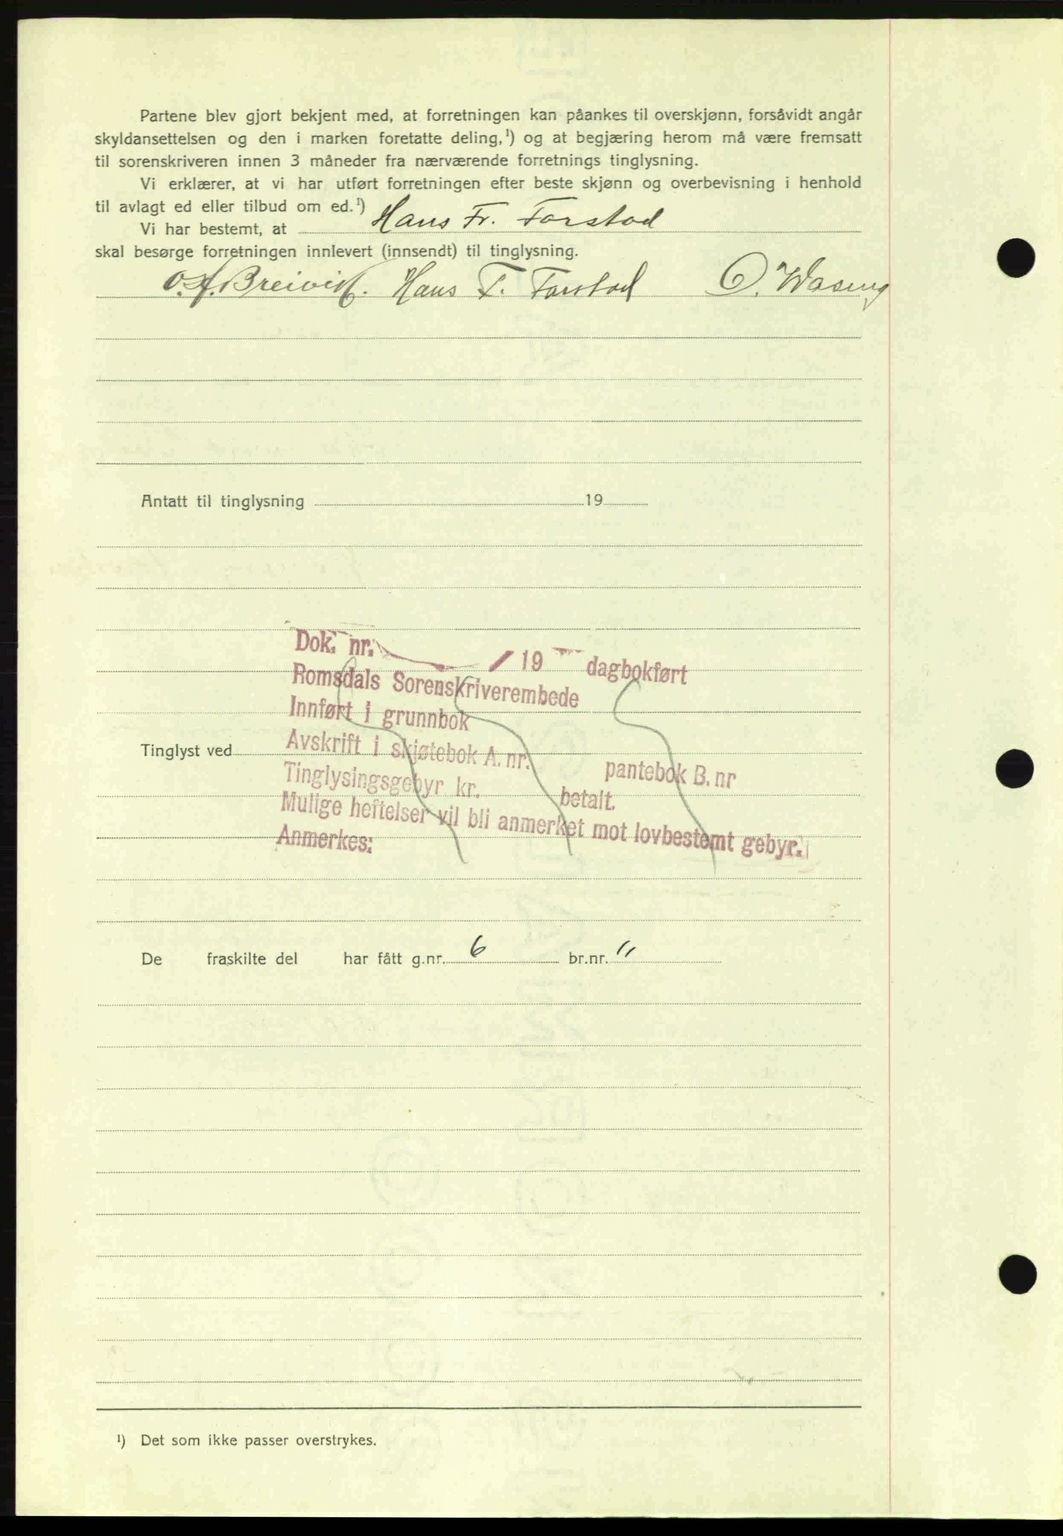 Partene blev gjort bekjent med, at forretningen kan påankes til overskjønn, forsåvidt angår
skyldansettelsen og den i marken foretatte deling,¹) og at begjæring herom må være fremsatt
til sorenskriveren innen 3 måneder fra nærværende forretnings tinglysning.
Vi erklærer, at vi har utført forretningen efter beste skjønn og overbevisning i henhold
til avlagt ed eller tilbud om ed.¹)
Vi har bestemt, at Hans Fr. Farstad
skal besørge forretningen innlevert (innsendt) til tinglysning.
O. A. Breivik. Hans F. Farstad O. Waseng
Antatt til tinglysning 19
Dok. nr. / 19 dagbokført
Romsdals Sorenskriverembede
Innført i grunnbok
Tinglyst ved
Avskrift i skjøtebok A. nr. pantebok B. nr
Tinglysingsgebyr kr. betalt.
Mulige heftelser vil bli anmerket mot lovbestemt gebyr.
Anmerkes:
De fraskilte del har fått g.nr. 6 br.nr. 11
¹) Det som ikke passer overstrykes.